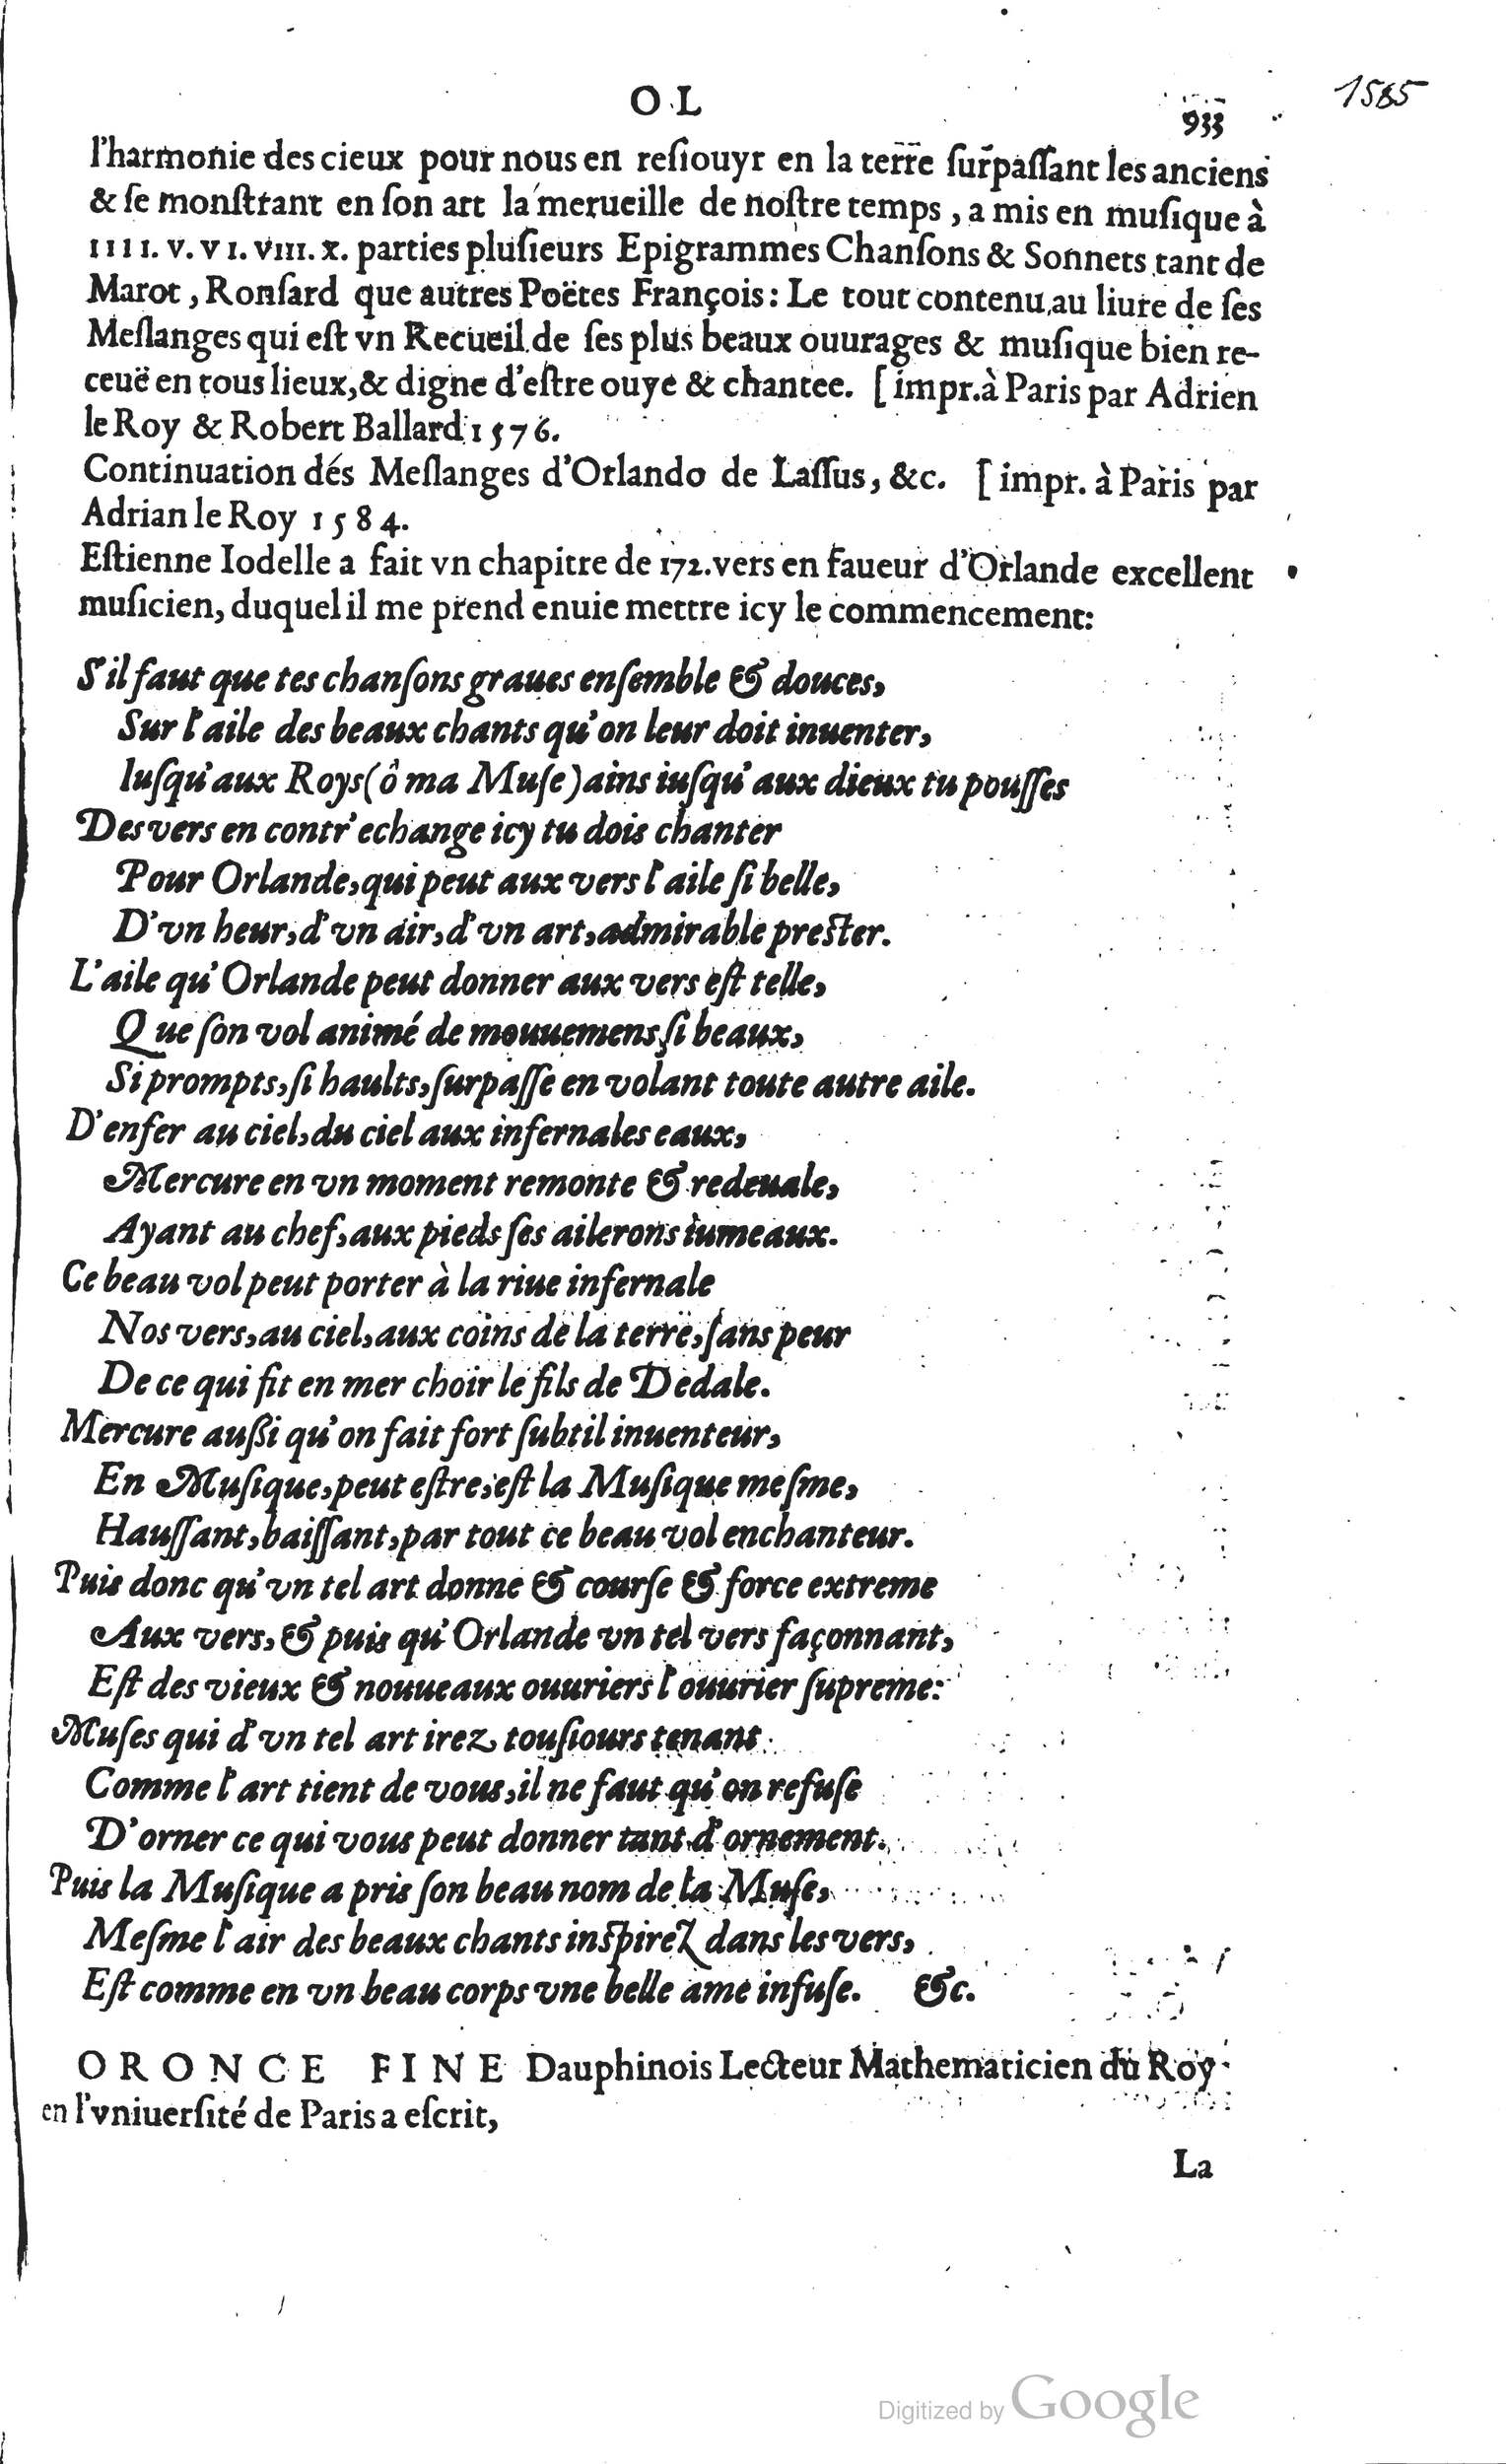 1585
OL
933
l'harmonie des cieux pour nous en reſiouyr en la terre ſurpaſſant les anciens
& ſe monſtrant en ſon art la merueille de noſtre temps, a mis en muſique à
IIII. V. VI. VIII. X. parties pluſieurs Epigrammes Chanſons & Sonnets tant de
Marot, Ronſard que autres Poëtes François: Le tout contenu au liure de ſes
Meſlanges qui eſt vn Recueil de ſes plus beaux ouurages & muſique bien re-
ceuë en tous lieux, & digne d'eſtre ouye & chantee. [impr. à Paris par Adrien
le Roy & Robert Ballard 1576.
Continuation dés Meſlanges d'Orlando de Laſſus, &c. [impr. à Paris par
Adrian le Roy 1584.
Eſtienne Iodelle a fait vn chapitre de 172. vers en faueur d'Orlande excellent
muſicien, duquel il me prend enuie mettre icy le commencement:
S'il faut que tes chanſons graues enſemble & douces,
Sur l'aile des beaux chants qu'on leur doit inuenter,
Iuſqu'aux Roys (ô ma Muſe) ains iuſqu'aux dieux tu pouſſes
Des vers en contr'echange icy tu dois chanter
Pour Orlande, qui peut aux vers l'aile ſi belle,
D'vn heur, d'vn air, d'vn art, admirable preſter.
L'aile qu'Orlande peut donner aux vers eſt telle,
Que ſon vol animé de mouuemens ſi beaux,
Si prompts, ſi haults, ſurpaſſe en volant toute autre aile.
D'enfer au ciel, du ciel aux infernales eaux,
Mercure en vn moment remonte & redeuale,
Ayant au chef, aux pieds ſes ailerons iumeaux.
Ce beau vol peut porter à la riue infernale
Nos vers, au ciel, aux coins de la terre, ſans peur
De ce qui fit en mer choir le fils de Dedale.
Mercure außi qu'on fait fort ſubtil inuenteur,
En Muſique, peut eſtre, eſt la Muſique meſme,
Hauſſant, baiſſant, par tout ce beau vol enchanteur.
Puis donc qu'vn tel art donne & courſe & force extreme
Aux vers, & puis qu'Orlande vn tel vers façonnant,
Eſt des vieux & nouueaux ouuriers l'ouurier ſupreme:
Muſes qui d'vn tel art irez touſiours tenant
Comme l'art tient de vous, il ne faut qu'on refuſe
D'orner ce qui vous peut donner tant d'ornement.
Puis la Muſique a pris ſon beau nom de la Muſe,
Meſme l'air des beaux chants inſpirez dans les vers,
Eſt comme en vn beau corps vne belle ame infuſe. &c.
ORONCE FINE Dauphinois Lecteur Mathematicien du Roy
en l'vniuerſité de Paris a eſcrit,
La
Digitized by Google